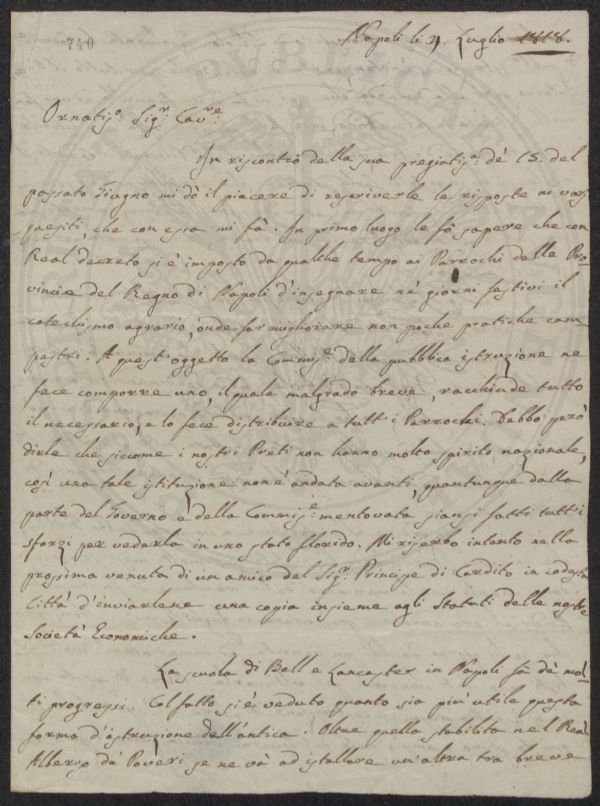 740
Napoli li 21. Luglio 1818.
Ornatis.o Sig.r Cav.re
In riscontro della sua pregiatis.a de' 15. del
passato Giugno mi dò il piacere di rescriverle le risposte ai varj
quesiti, che con essa mi fà. In primo luogo le fò sapere che con
Real decreto si è imposto da qualche tempo ai Parrochi delle Pro
vincie del Regno di Napoli d'insegnare nè giorni festivi il
catechismo agrario, onde far migliorare non poche pratiche cam
pestri. A quest'oggetto la Commis.e della pubblica istruzione ne
fece comporre uno, il quale malgrado breve, racchiude tutto
il necessario, e lo fece distribuire a tutt'i Parrochi. Debbo però
dirle che siccome i nostri Preti non hanno molto spirito nazionale,
così una tale istituzione non è andata avanti, quantunque dalla
parte del Governo e della Commis.e mentovata siansi fatti tutt'i
sforzi per vederla in uno stato florido. Mi riserbo intanto nella
prossima venuta di un amico del Sig.r Principe di Cardito in codesta
Città d'inviarlene una copia insieme agli Statuti delle nostre
Società Economiche.
La scuola di Bell e Lancaster in Napoli fà dè mol
ti progressi. Col fatto si è veduto quanto sia più utile questa
forma d'istruzione dell'antica. Oltre quella stabilita nel Real
Albergo dè Poveri se ne và ad istallare un'altra tra breve